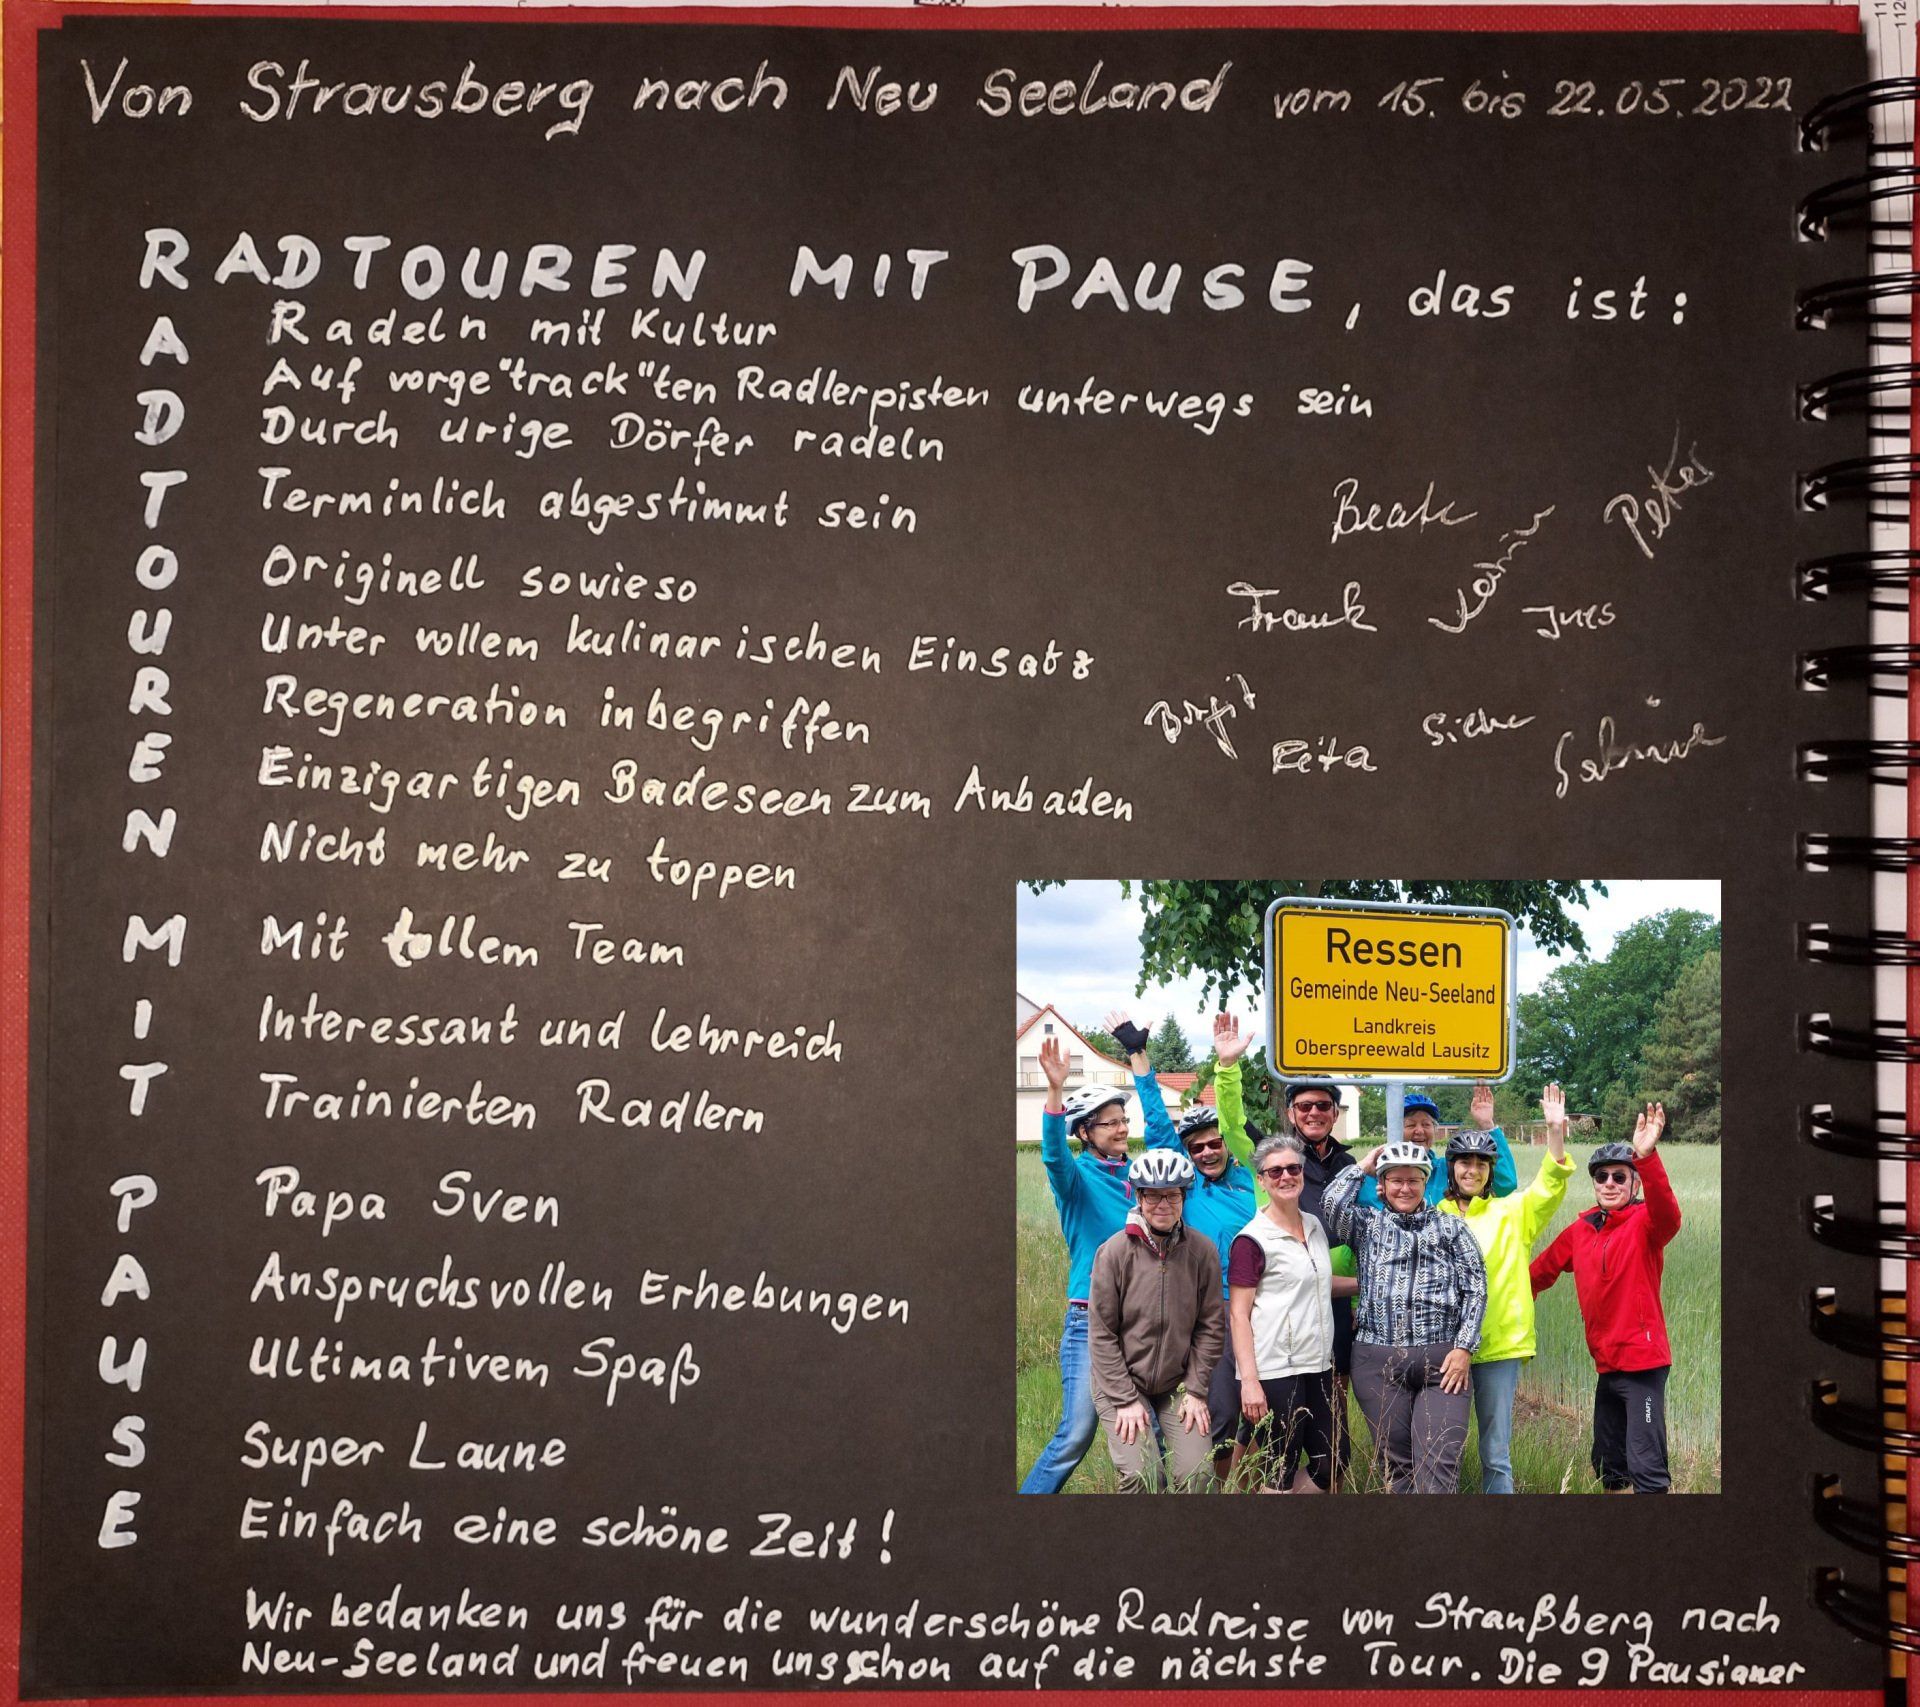 Von Strausberg nach Neu Seeland vom 15. bis 22.05.2022
RADTOUREN MIT PAUSE, das ist:
R Radeln mit Kultur
A Auf vorge"track"ten Radlerpisten unterwegs sein
D Durch urige Dörfer radeln
T Terminlich abgestimmt sein
O Originell sowieso
U Unter vollem kulinarischen Einsatz
R Regeneration inbegriffen
E Einzigartigen Badeseen zum Anbaden
N Nicht mehr zu toppen
M Mit tollem Team
I Interessant und lehrreich
T Trainierten Radlern
P Papa Sven
A Anspruchsvollen Erhebungen
U Ultimativem Spaß
S Super Laune
E Einfach eine schöne Zeit!
Wir bedanken uns für die wunderschöne Radreise von Straußberg nach
Neu-Seeland und freuen uns schon auf die nächste Tour. Die 9 Pausianer
Beate Peter
Frank Ines
Birgit Rita Sabine
Ressen
Gemeinde Neu-Seeland
Landkreis
Oberspreewald Lausitz
CRAFT